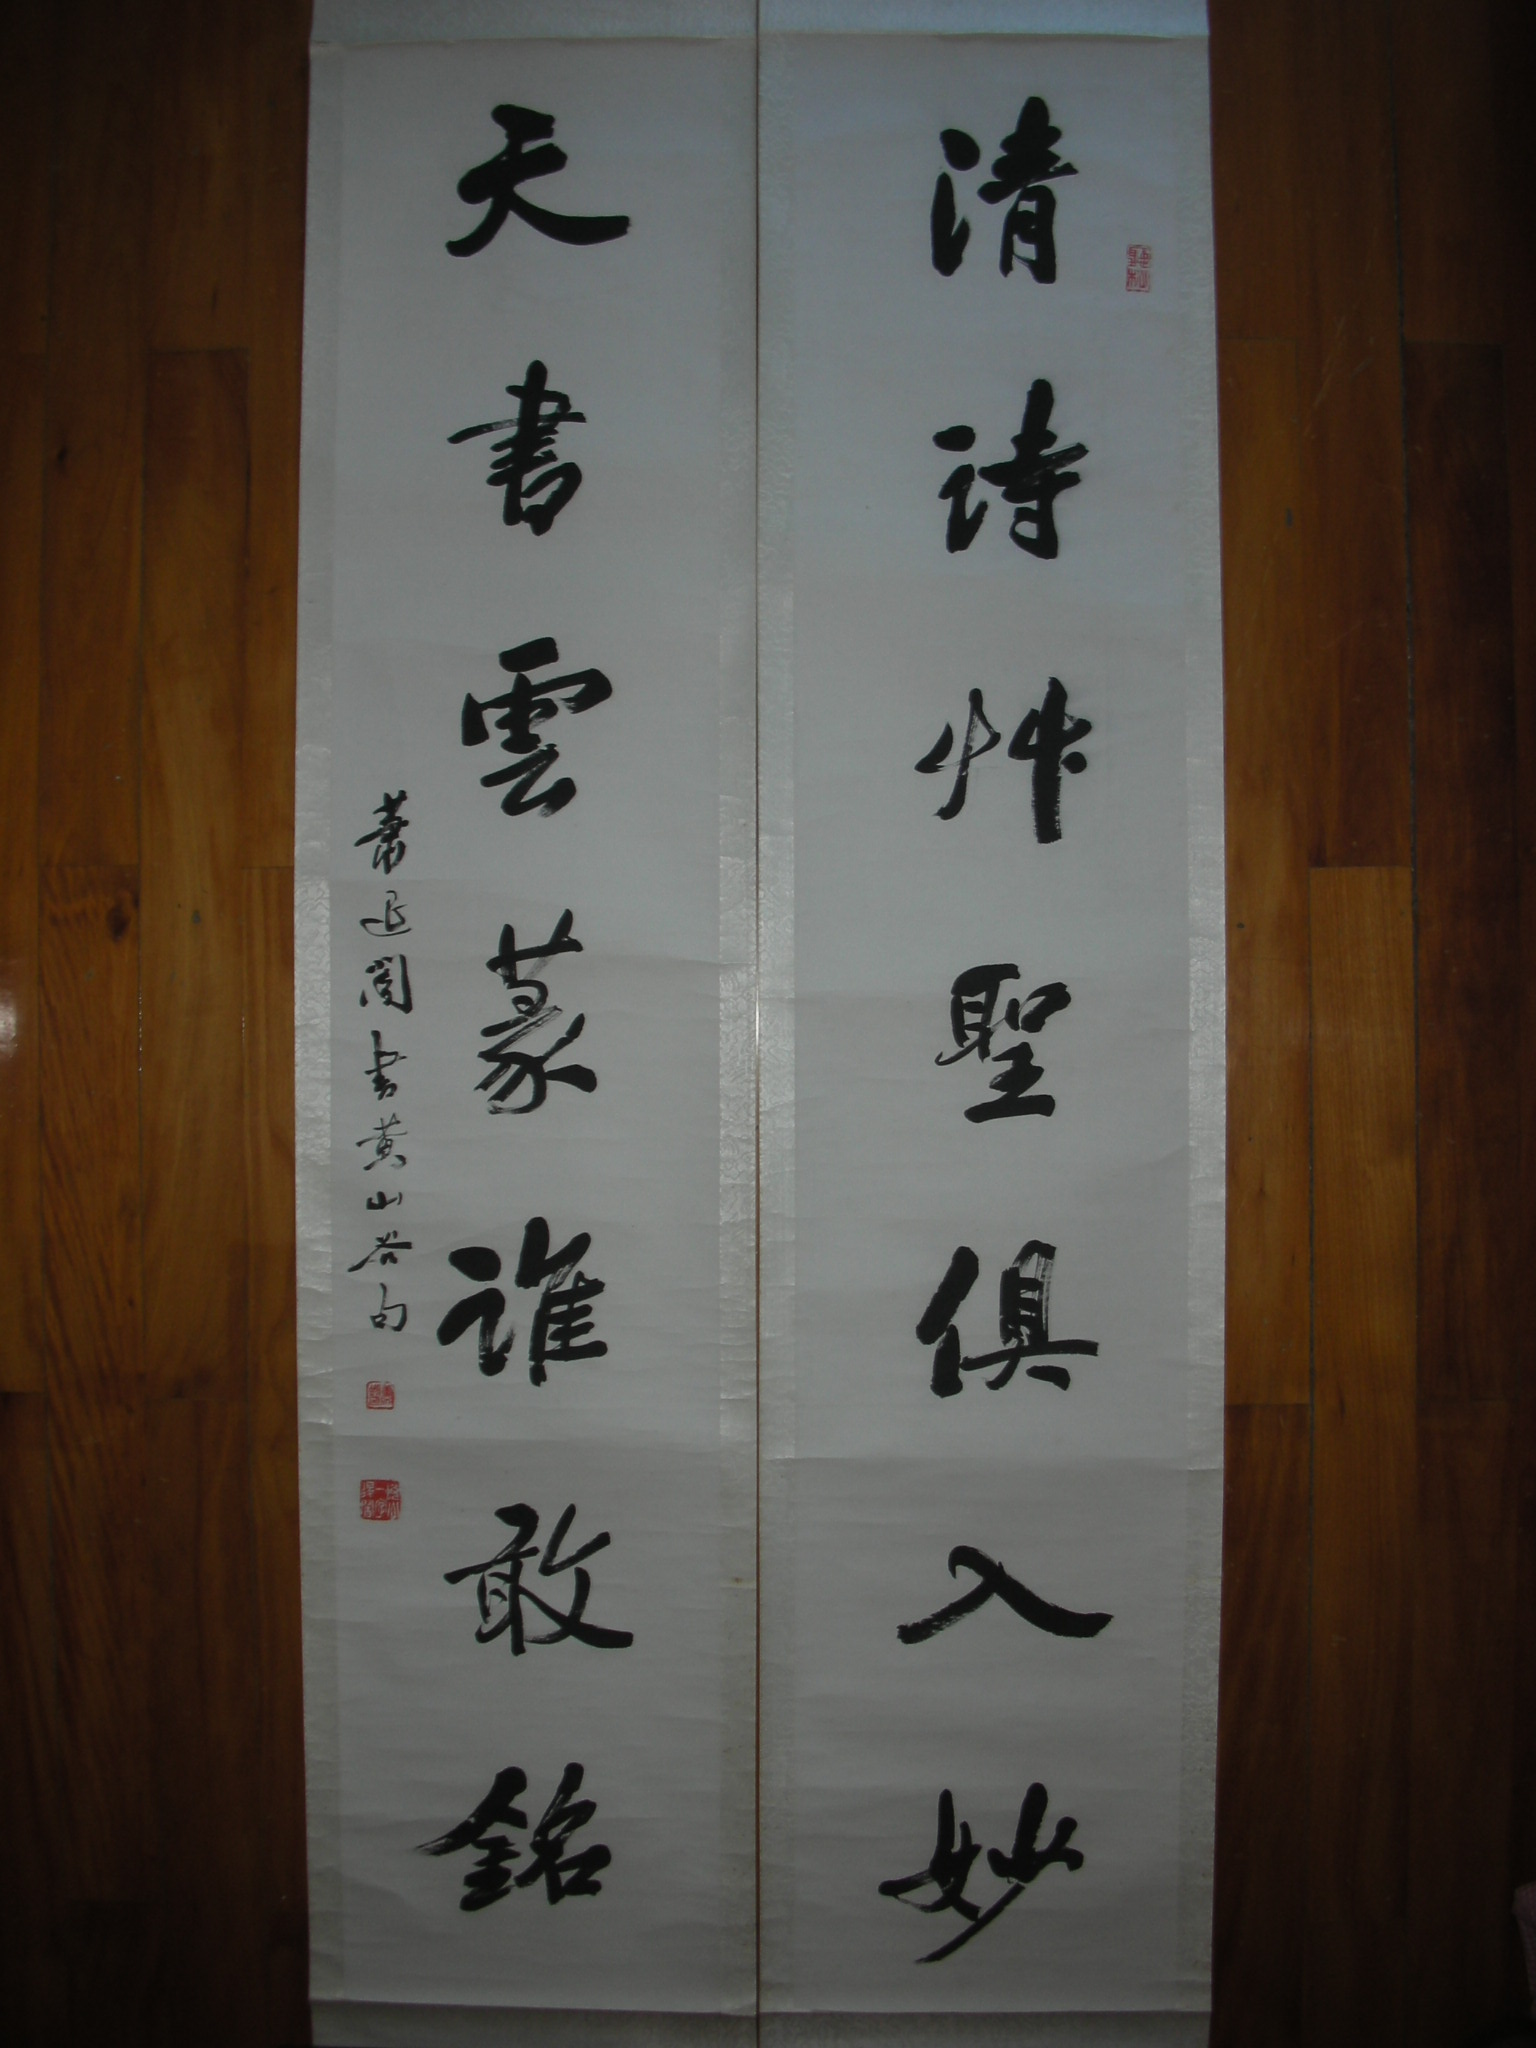 清詩艸聖俱入妙
天書雲篆誰敢銘
蕭退闇書黃山谷句